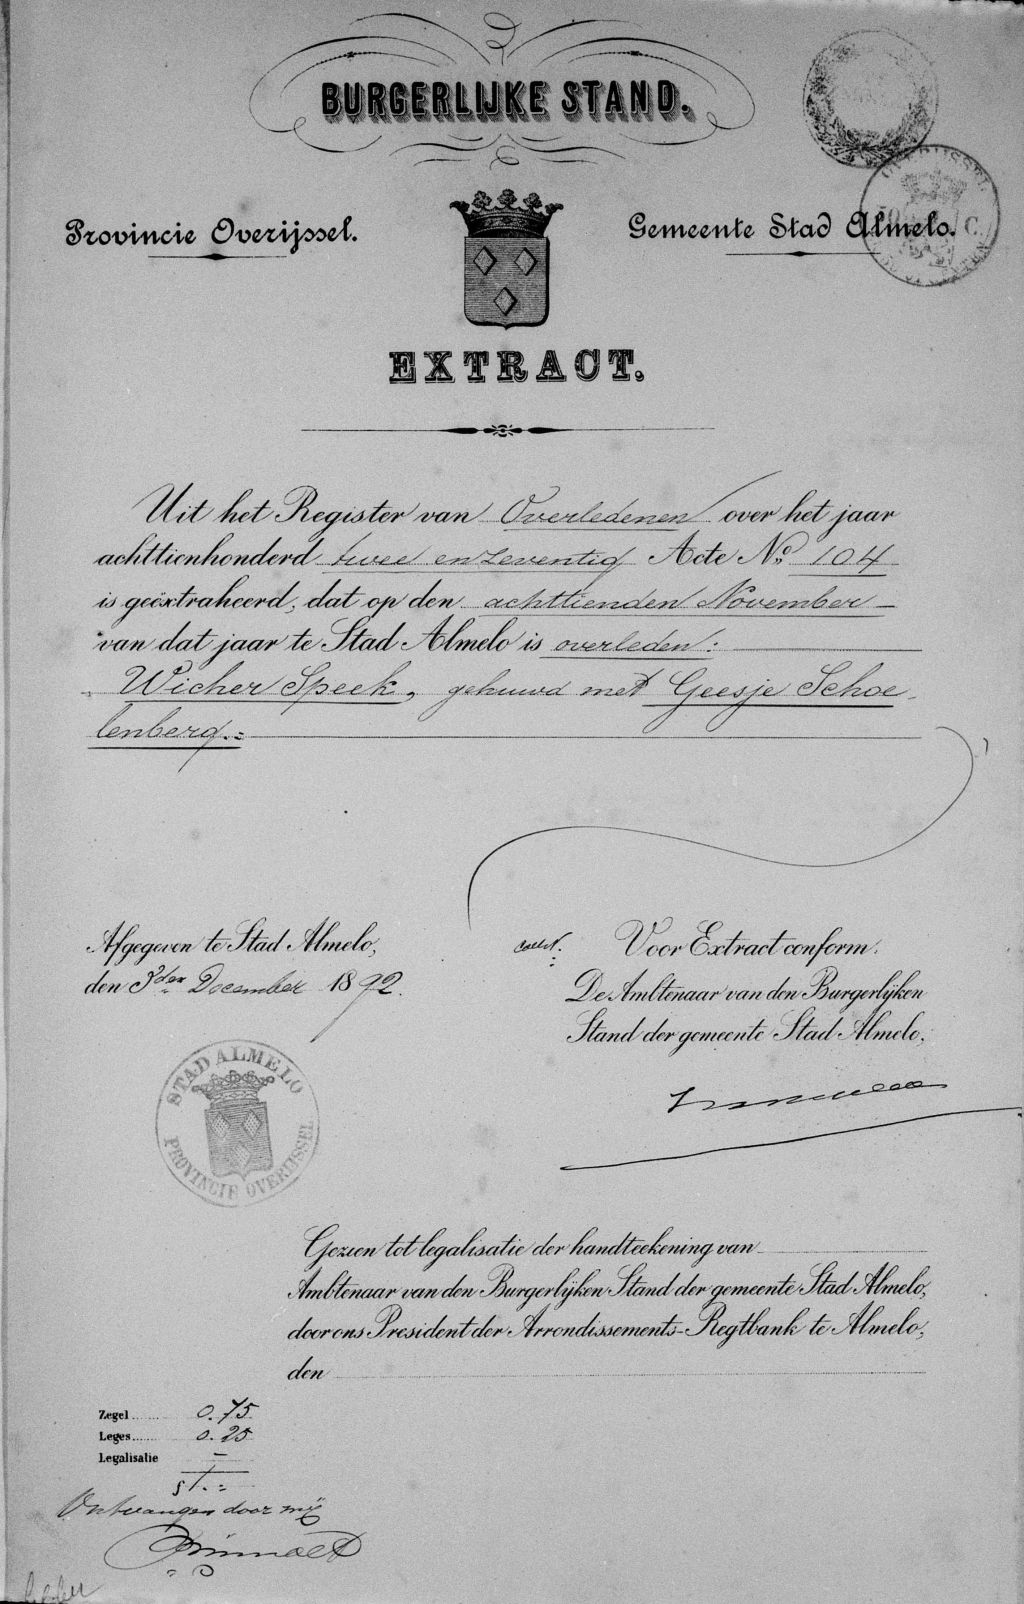 BURGERLIJKE STAND.
Provincie Overijssel.
Gemeente Stad Almelo.
EXTRACT.
Uit het Register van Overledenen over het jaar
achttienhonderd twee en zeventig Acte No. 104
is geëxtraheerd, dat op den achttienden November
van dat jaar te Stad Almelo is overleden:
Wicher Speek, gehuwd met Geesje Schoe-
lenberg.=
Afgegeven te Stad Almelo,
den 3den December 1892.
Voor Extract conform.
De Ambtenaar van den Burgerlijken
Stand der gemeente Stad Almelo,
STAD ALMELO
PROVINCIE OVERIJSSEL
Gezien tot legalisatie der handteekening van
Ambtenaar van den Burgerlijken Stand der gemeente Stad Almelo,
door ons President der Arrondissements-Regtbank te Almelo,
den
Zegel 0.75
Leges 0.25
Legalisatie –
f 1.=
Ontvangen door mij